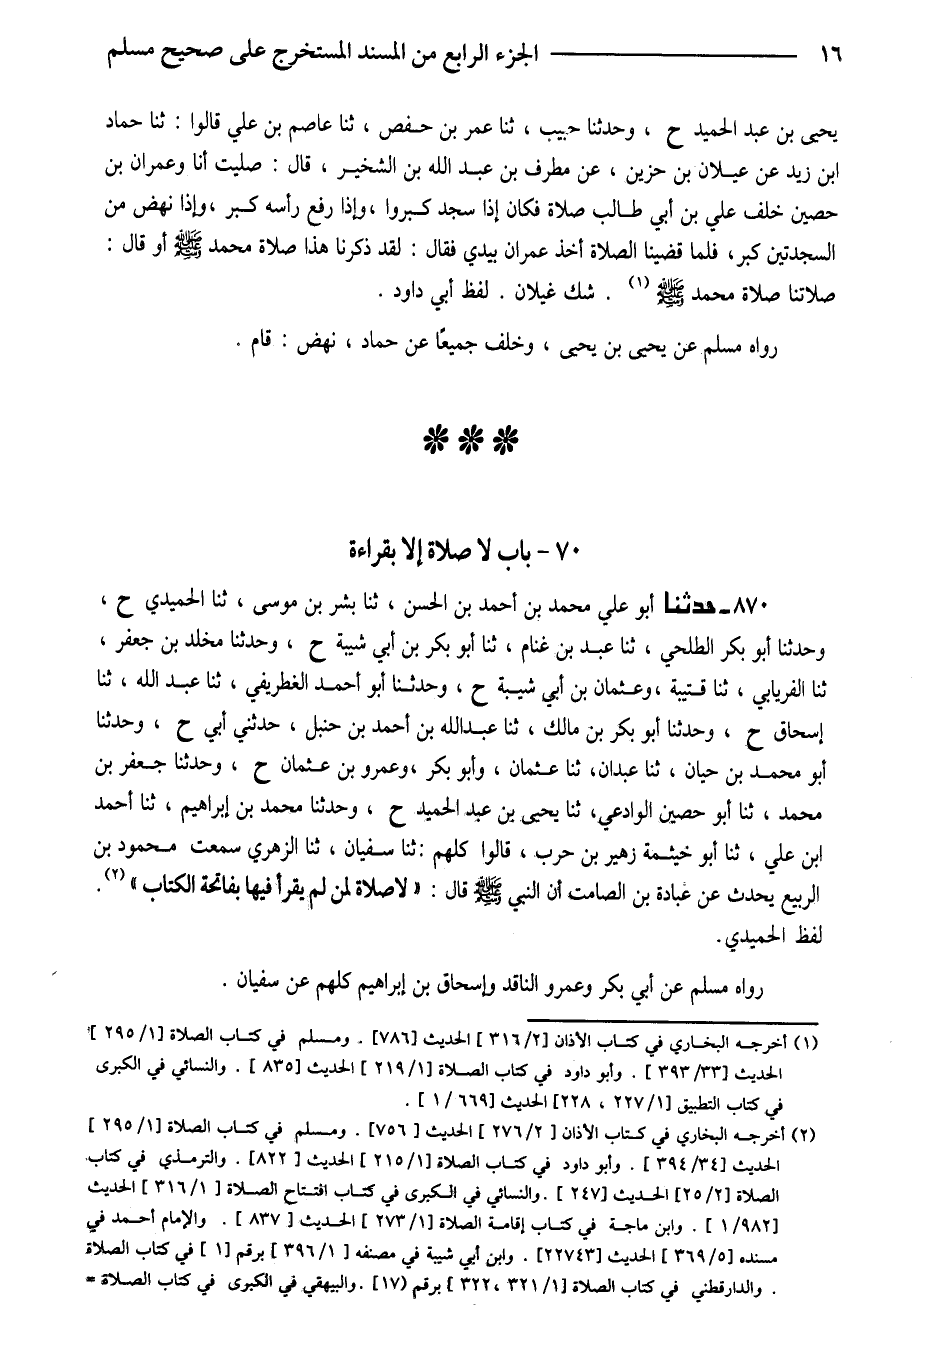 ١٦ ـــــــــــــــــ الجزء الرابع من المسند المستخرج على صحيح مسلم
يحيى بن عبد الحميد ح ، وحدثنا حبيب ، ثنا عمر بن حفص ، ثنا عاصم بن علي قالوا : ثنا حماد
ابن زيد عن عيلان بن حزين ، عن مطرف بن عبد الله بن الشخير ، قال : صليت أنا وعمران بن
حصين خلف علي بن أبي طالب صلاة فكان إذا سجد كبروا ، وإذا رفع رأسه كبر ، وإذا نهض من
السجدتين كبر ، فلما قضينا الصلاة أخذ عمران بيدي فقال : لقد ذكرنا هذا صلاة محمد ﷺ أو قال :
صلاتنا صلاة محمد ﷺ (١) . شك غيلان . لفظ أبي داود .
رواه مسلم عن يحيى بن يحيى ، وخلف جميعًا عن حماد ، نهض : قام .
٧٠ - باب لا صلاة إلا بقراءة
٨٧٠ـ حدثنا أبو علي محمد بن أحمد بن الحسن ، ثنا بشر بن موسى ، ثنا الحميدي ح ،
وحدثنا أبو بكر الطلحي ، ثنا عبيد بن غنام ، ثنا أبو بكر بن أبي شيبة ح ، وحدثنا مخلد بن جعفر ،
ثنا الفريابي ، ثنا قتيبة ، وعثمان بن أبي شيبة ح ، وحدثنا أبو أحمد الغطريفي ، ثنا عبد الله ، ثنا
إسحاق ح ، وحدثنا أبو بكر بن مالك ، ثنا عبدالله بن أحمد بن حنبل ، حدثني أبي ح ، وحدثنا
أبو محمد بن حيان ، ثنا عبدان، ثنا عثمان ، وأبو بكر ، وعمرو بن عثمان ح ، وحدثنا جعفر بن
محمد ، ثنا أبو حصين الوادعي، ثنا يحيى بن عبد الحميد ح ، وحدثنا محمد بن إبراهيم ، ثنا أحمد
ابن علي ، ثنا أبو خيثمة زهير بن حرب ، قالوا كلهم : ثنا سفيان ، ثنا الزهري سمعت محمود بن
الربيع يحدث عن عبادة بن الصامت أن النبي ﷺ قال : « لاصلاة لمن لم يقرأ فيها بفاتحة الكتاب » (٢).
لفظ الحميدي.
رواه مسلم عن أبي بكر وعمرو الناقد وإسحاق بن إبراهيم كلهم عن سفيان .
(١) أخرجه البخاري في كتاب الأذان [٢/ ٣١٦ ] الحديث [٧٨٦] . ومسلم في كتاب الصلاة [١/ ٢٩٥ ]
الحديث [٣٣/ ٣٩٣ ] . وأبو داود في كتاب الصلاة [١/ ٢١٩ ] الحديث [ ٨٣٥ ] . والنسائي في الكبرى
في كتاب التطبيق [١/ ٢٢٧ ، ٢٢٨] الحديث [٦٦٩/ ١ ] .
(٢) أخرجه البخاري في كتاب الأذان [ ٢/ ٢٧٦ ] الحديث [ ٧٥٦] . ومسلم في كتاب الصلاة [١/ ٢٩٥ ]
الحديث [٣٤/ ٣٩٤ ] . وأبو داود في كتاب الصلاة [١/ ٢١٥ ] الحديث [ ٨٢٢ ] . والترمذي في كتاب
الصلاة [٢/ ٢٥] الحديث [٢٤٧ ] . والنسائي في الكبرى في كتاب افتتاح الصلاة [ ١/ ٣١٦ ] الحديث
[٩٨٢/ ١ ] . وابن ماجة في كتاب إقامة الصلاة [١/ ٢٧٣ ] الحديث [ ٨٣٧ ] . والإمام أحمد في
مسنده [٥/ ٣٦٩ ] الحديث [٢٢٧٤٣] . وابن أبي شيبة في مصنفه [ ١/ ٣٩٦ ] برقم [١ ] في كتاب الصلاة
. والدارقطني في كتاب الصلاة [١/ ٣٢١ ، ٣٢٢ ] برقم (١٧] . والبيهقي في الكبرى في كتاب الصلاة =